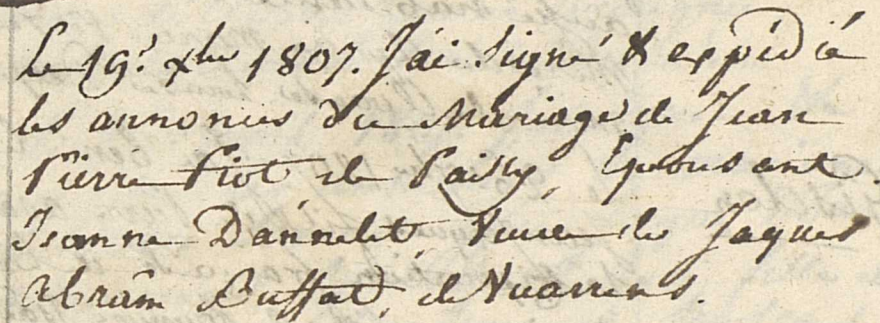 Le 19.e Xbre 1807. J'ai signé & expédié
les annonces du Mariage de Jean
Pierre Piot de Pailly, Epousant
Jeanne Dannelet, Veuve de Jaques
Abram Buffat, de Vuarrens.